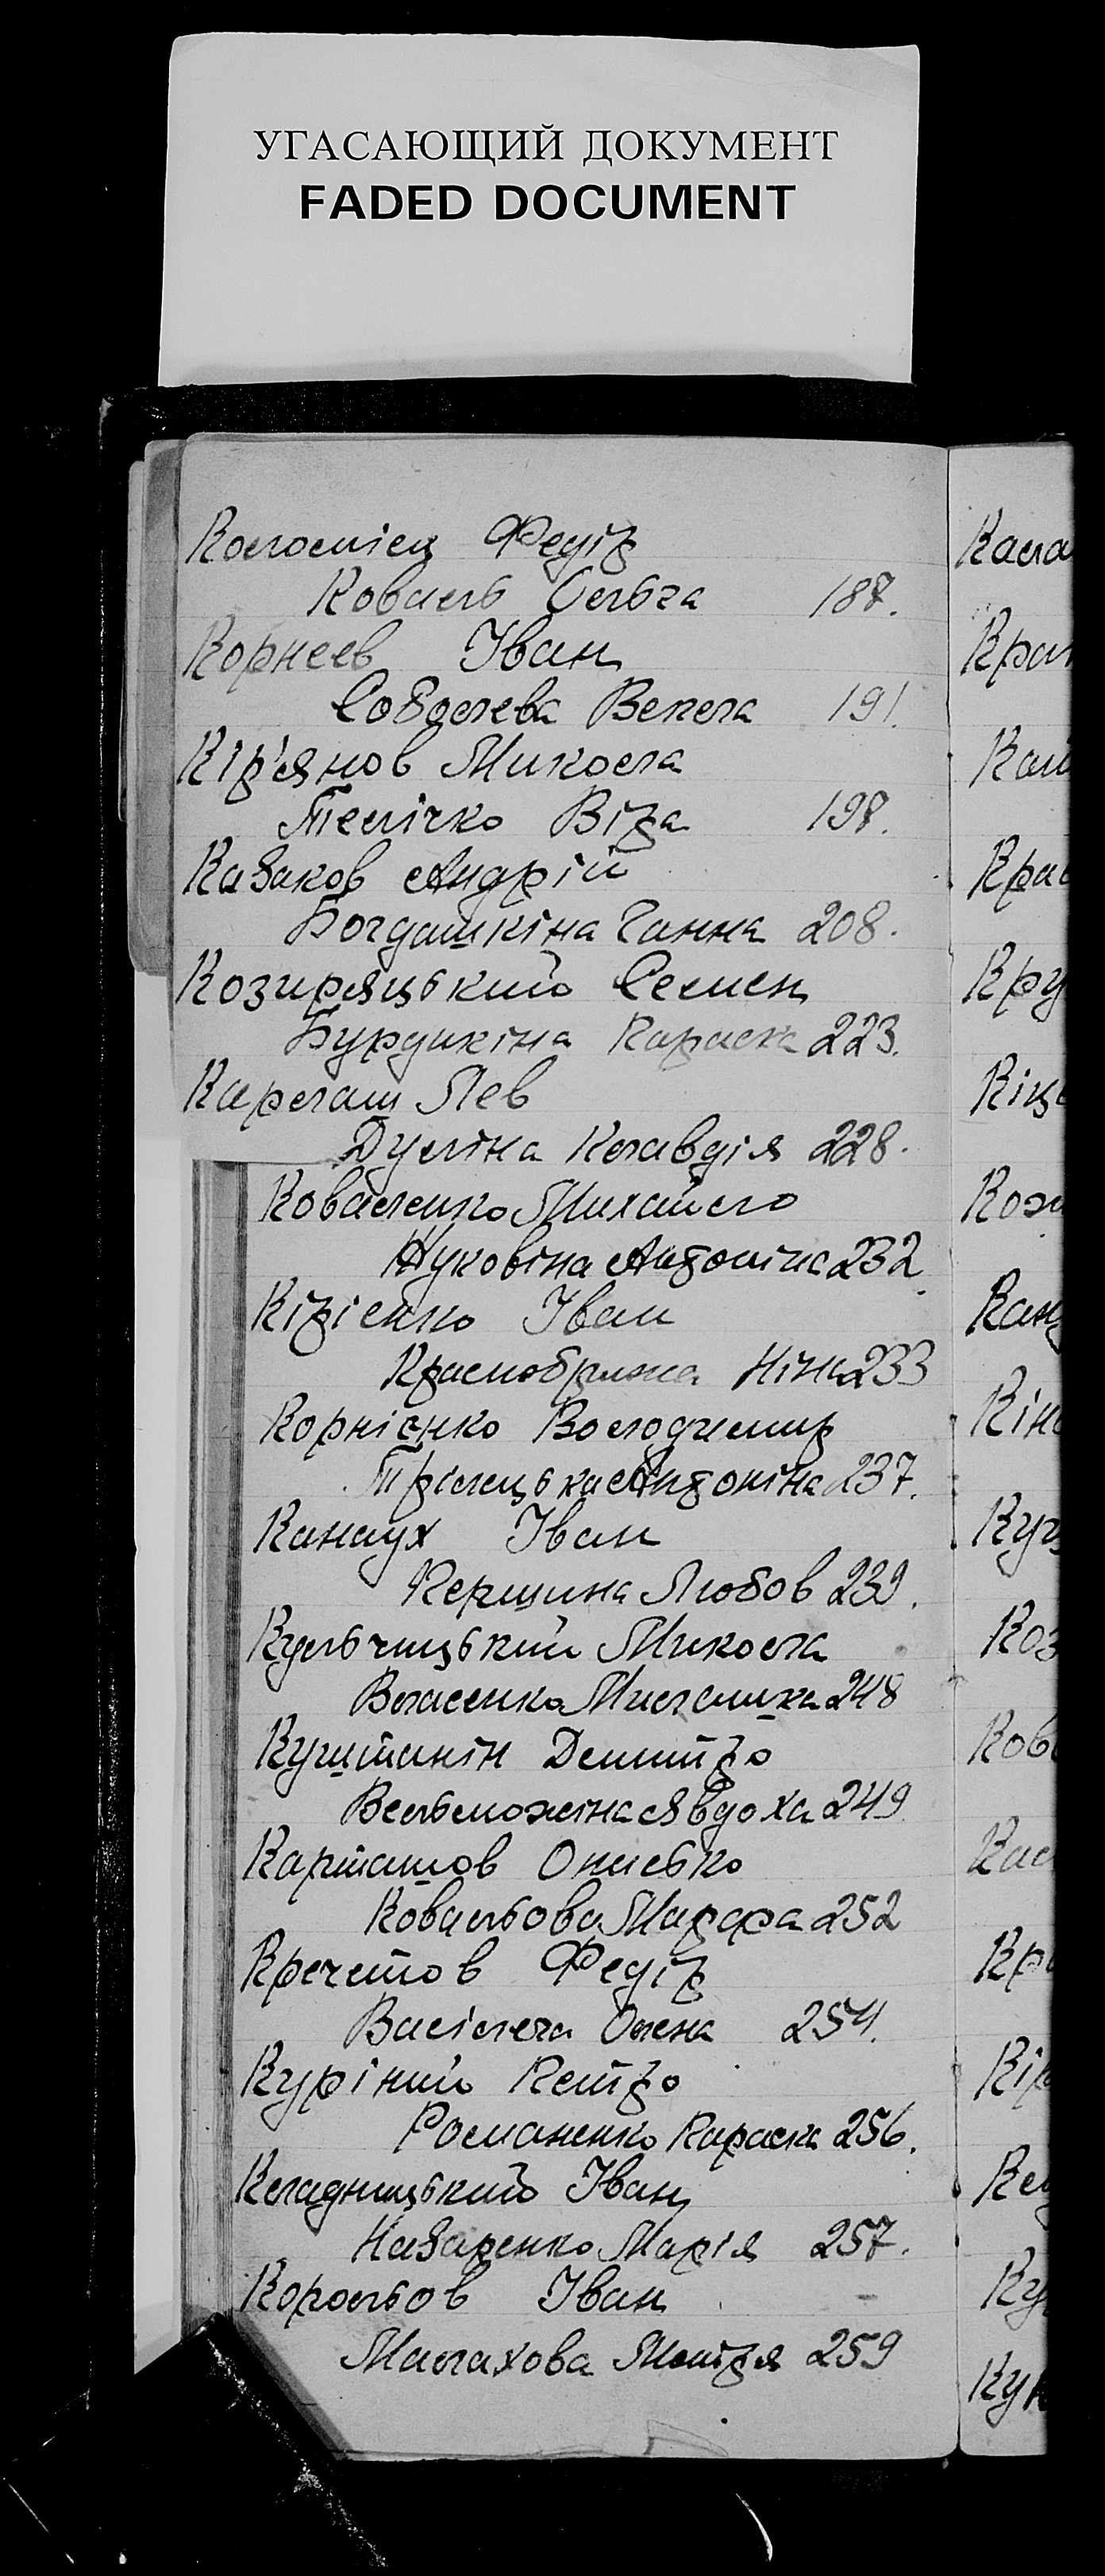 УГАСАЮЩИЙ ДОКУМЕНТ
FADED DOCUMENT
Коломієц Федір
Коваль Ольга 187.
Корнеев Іван
Соболева Векла 191.
Кір'янов Микола
Телічко Віра 198.
Казаков Андрій
Богдашкіна Ганна 208.
Козиряцький Семен
Бурдикіна Параска 223.
Карлаш Лев
Дуліна Клавдія 228.
Коваленко Михайло
Жуковіна Антоніна 232
Кірієнко Іван
Краснобрижа Ніна 233
Корнієнко Володимир
Трілецька Антоніна 237.
Канаух Іван
Першина Любов 239.
Кульчицький Микола
Власенко Милашка 248
Куштанін Дмитро
Вельможіна Явдоха 249
Карташов Онисько
Ковальова Марфа 252
Кречетов Федір
Васілега Олена 254.
Куріний Петро
Романенко Параска 256.
Кладницький Іван
Назаренко Марія 257.
Корольов Іван
Малахова Мотря 259
Кала
Кра
Кру
Коз
Ков
Кр
Кір